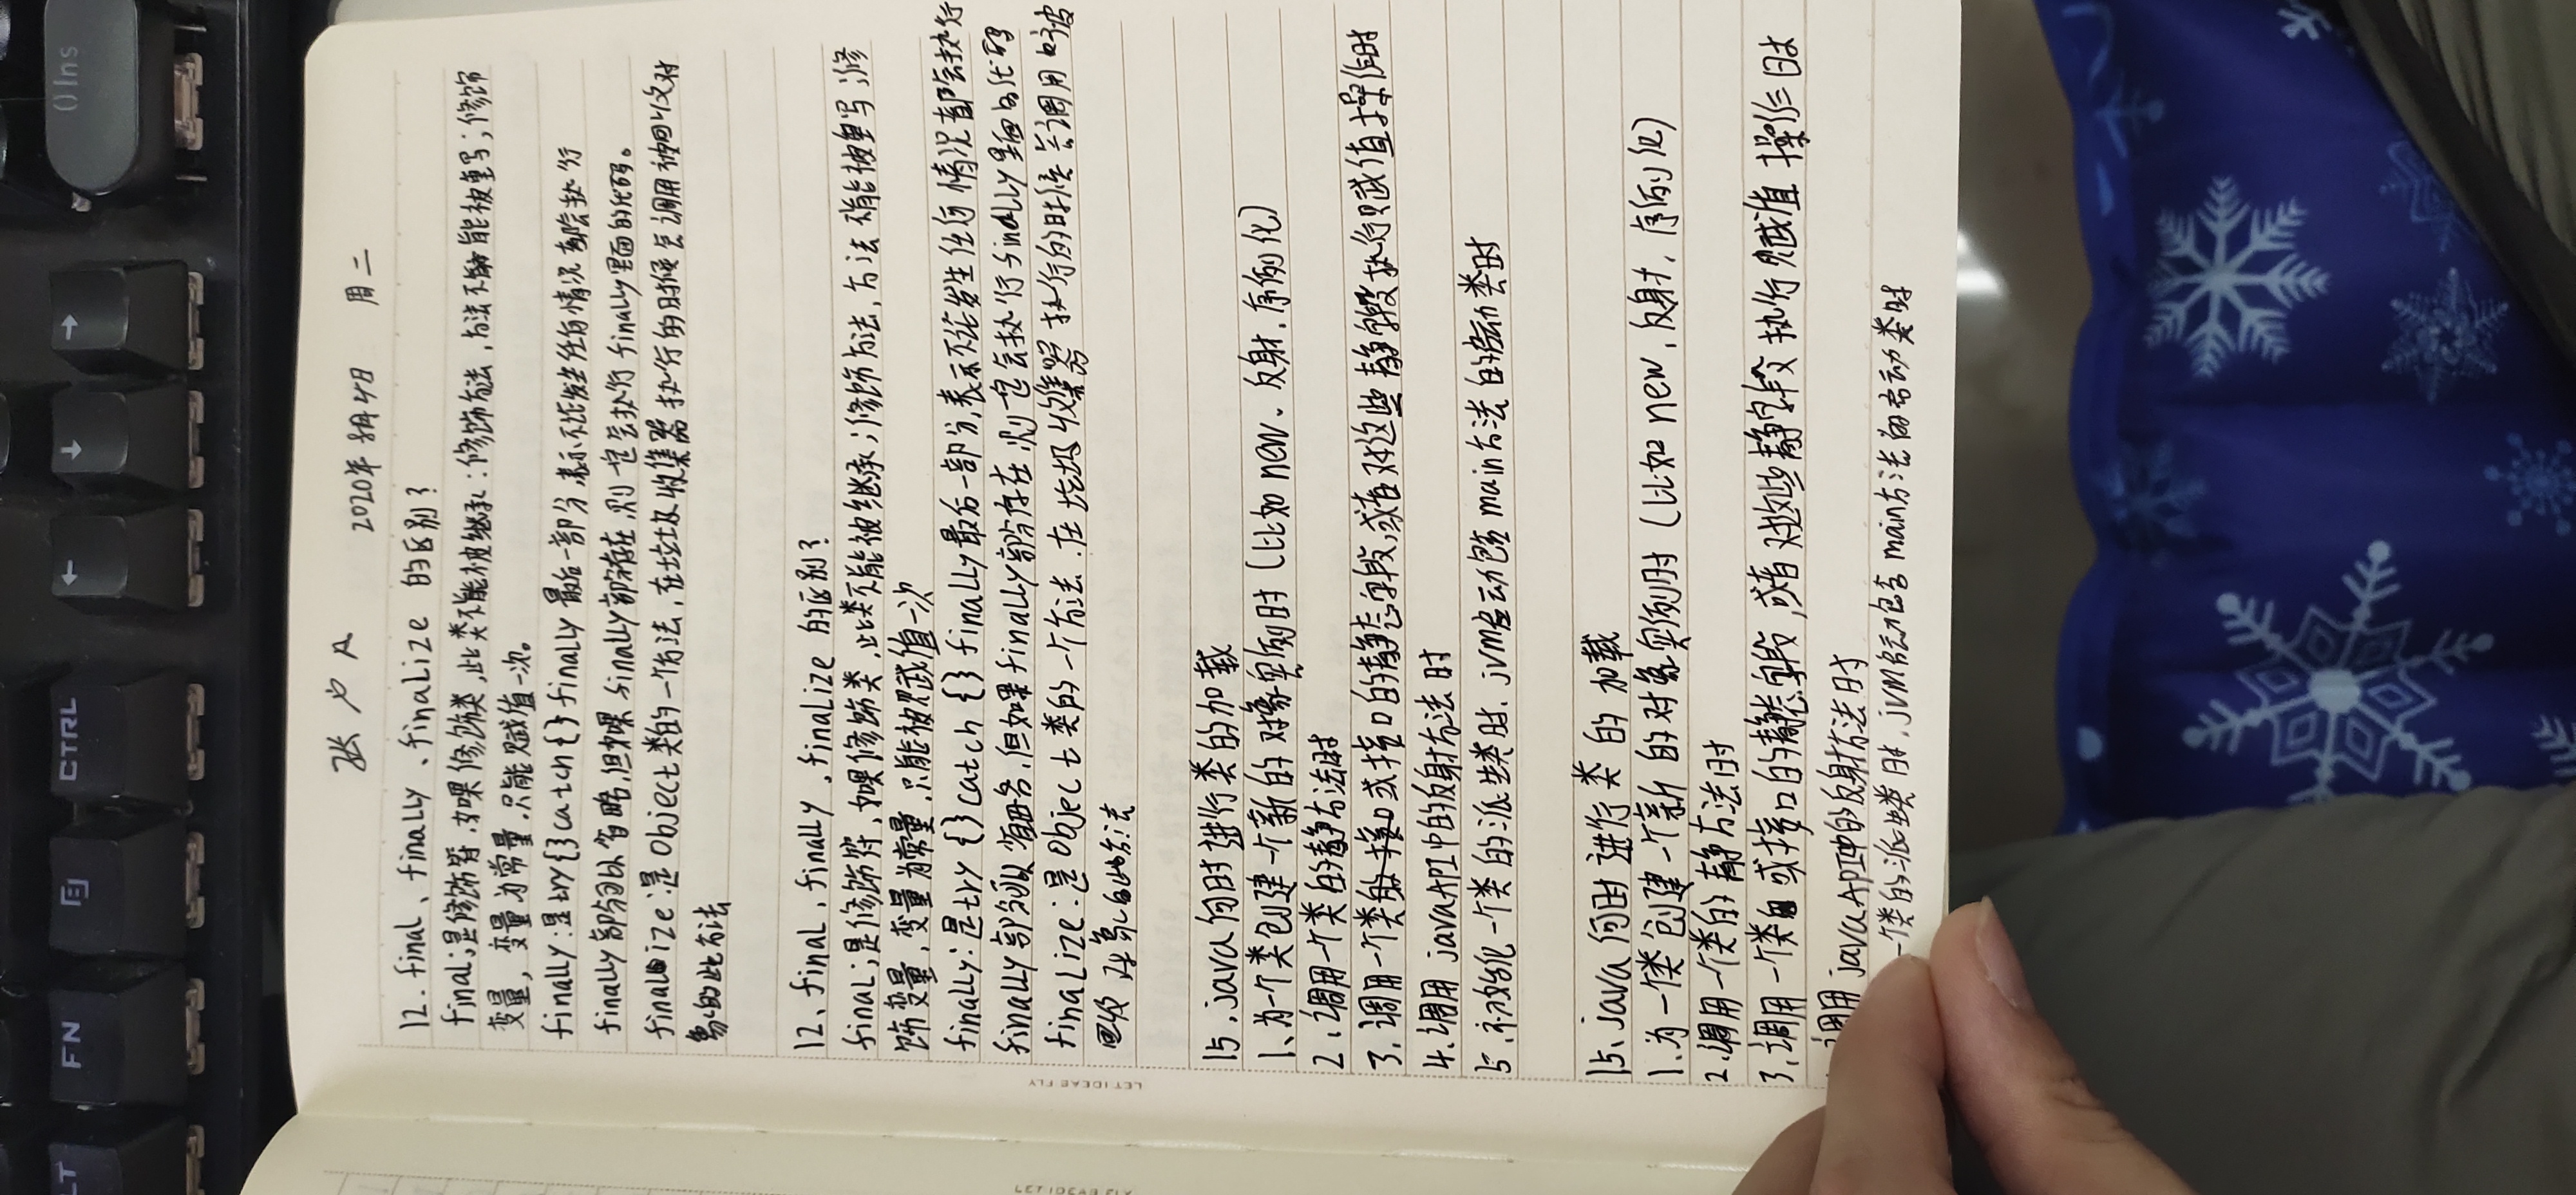 FN
CTRL
←
↓
→
0 Ins
张
2020年8月4日 周二
12. final、finally、finalize 的区别?
final;是修饰符,如果修饰类,此类不能被继承;修饰方法,方法不能被重写;修饰
变量,变量为常量,只能赋值一次。
finally:是try{}catch{}finally最后一部分,表示不论发生任何情况都会执行
finally部分可以省略,但如果finally部分存在,则一定会执行finally里面的代码。
finalize:是Object类的一个方法,在垃圾收集器执行的时候会调用被回收对
象的此方法
12、final、finally、finalize 的区别?
final;是修饰符,如果修饰类,此类不能被继承;修饰方法,方法不能被重写;修
饰变量,变量为常量,只能被赋值一次
finally:是try{}catch{}finally最后一部分,表示不论发生任何情况都会执行
finally部分可以省略,但如果finally部分存在,则一定会执行finally里面的代码
finalize:是Object类的一个方法,在垃圾收集器执行的时候会调用被
回收对象的此方法
LET IDEAS FLY
15.java何时进行类的加载
1、为一个类创建一个新的对象实例时(比如new、反射、序例化)
2、调用一个类的静方法时
3.调用一个类或接口的静态字段,或者对这些静字段执行赋值操作时
4.调用javaAPI中的反射方法时
5.初始化一个类的派生类时.jvm启动包含main方法的启动类时
15、java何时进行类的加载
1.为一个类创建一个新的对象实例时(比如new,反射,序例化)
2.调用一个类的静方法时
3.调用一个类或接口的静态字段,或者对这些静字段执行赋值操作时
调用javaAPI中的反射方法时
一个类的派生类时.jvm启动包含main方法的启动类时